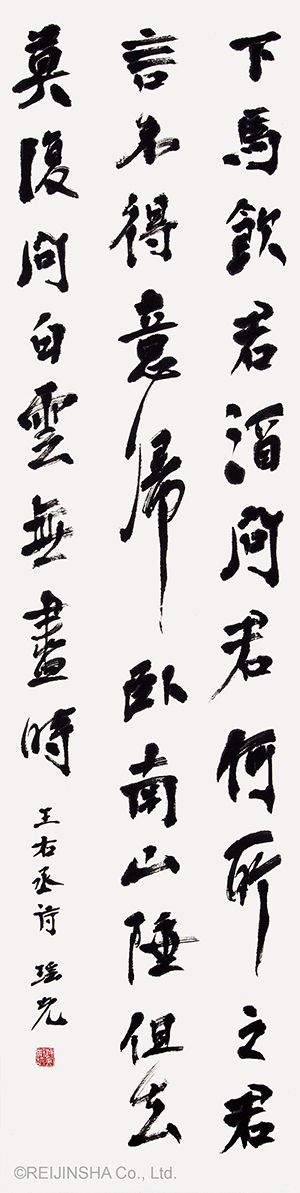 下馬飲君酒問君何所之君
言不得意歸臥南山陲但去
莫復問白雲無盡時 王右丞詩 瑤光
©REIJINSHA Co., Ltd.